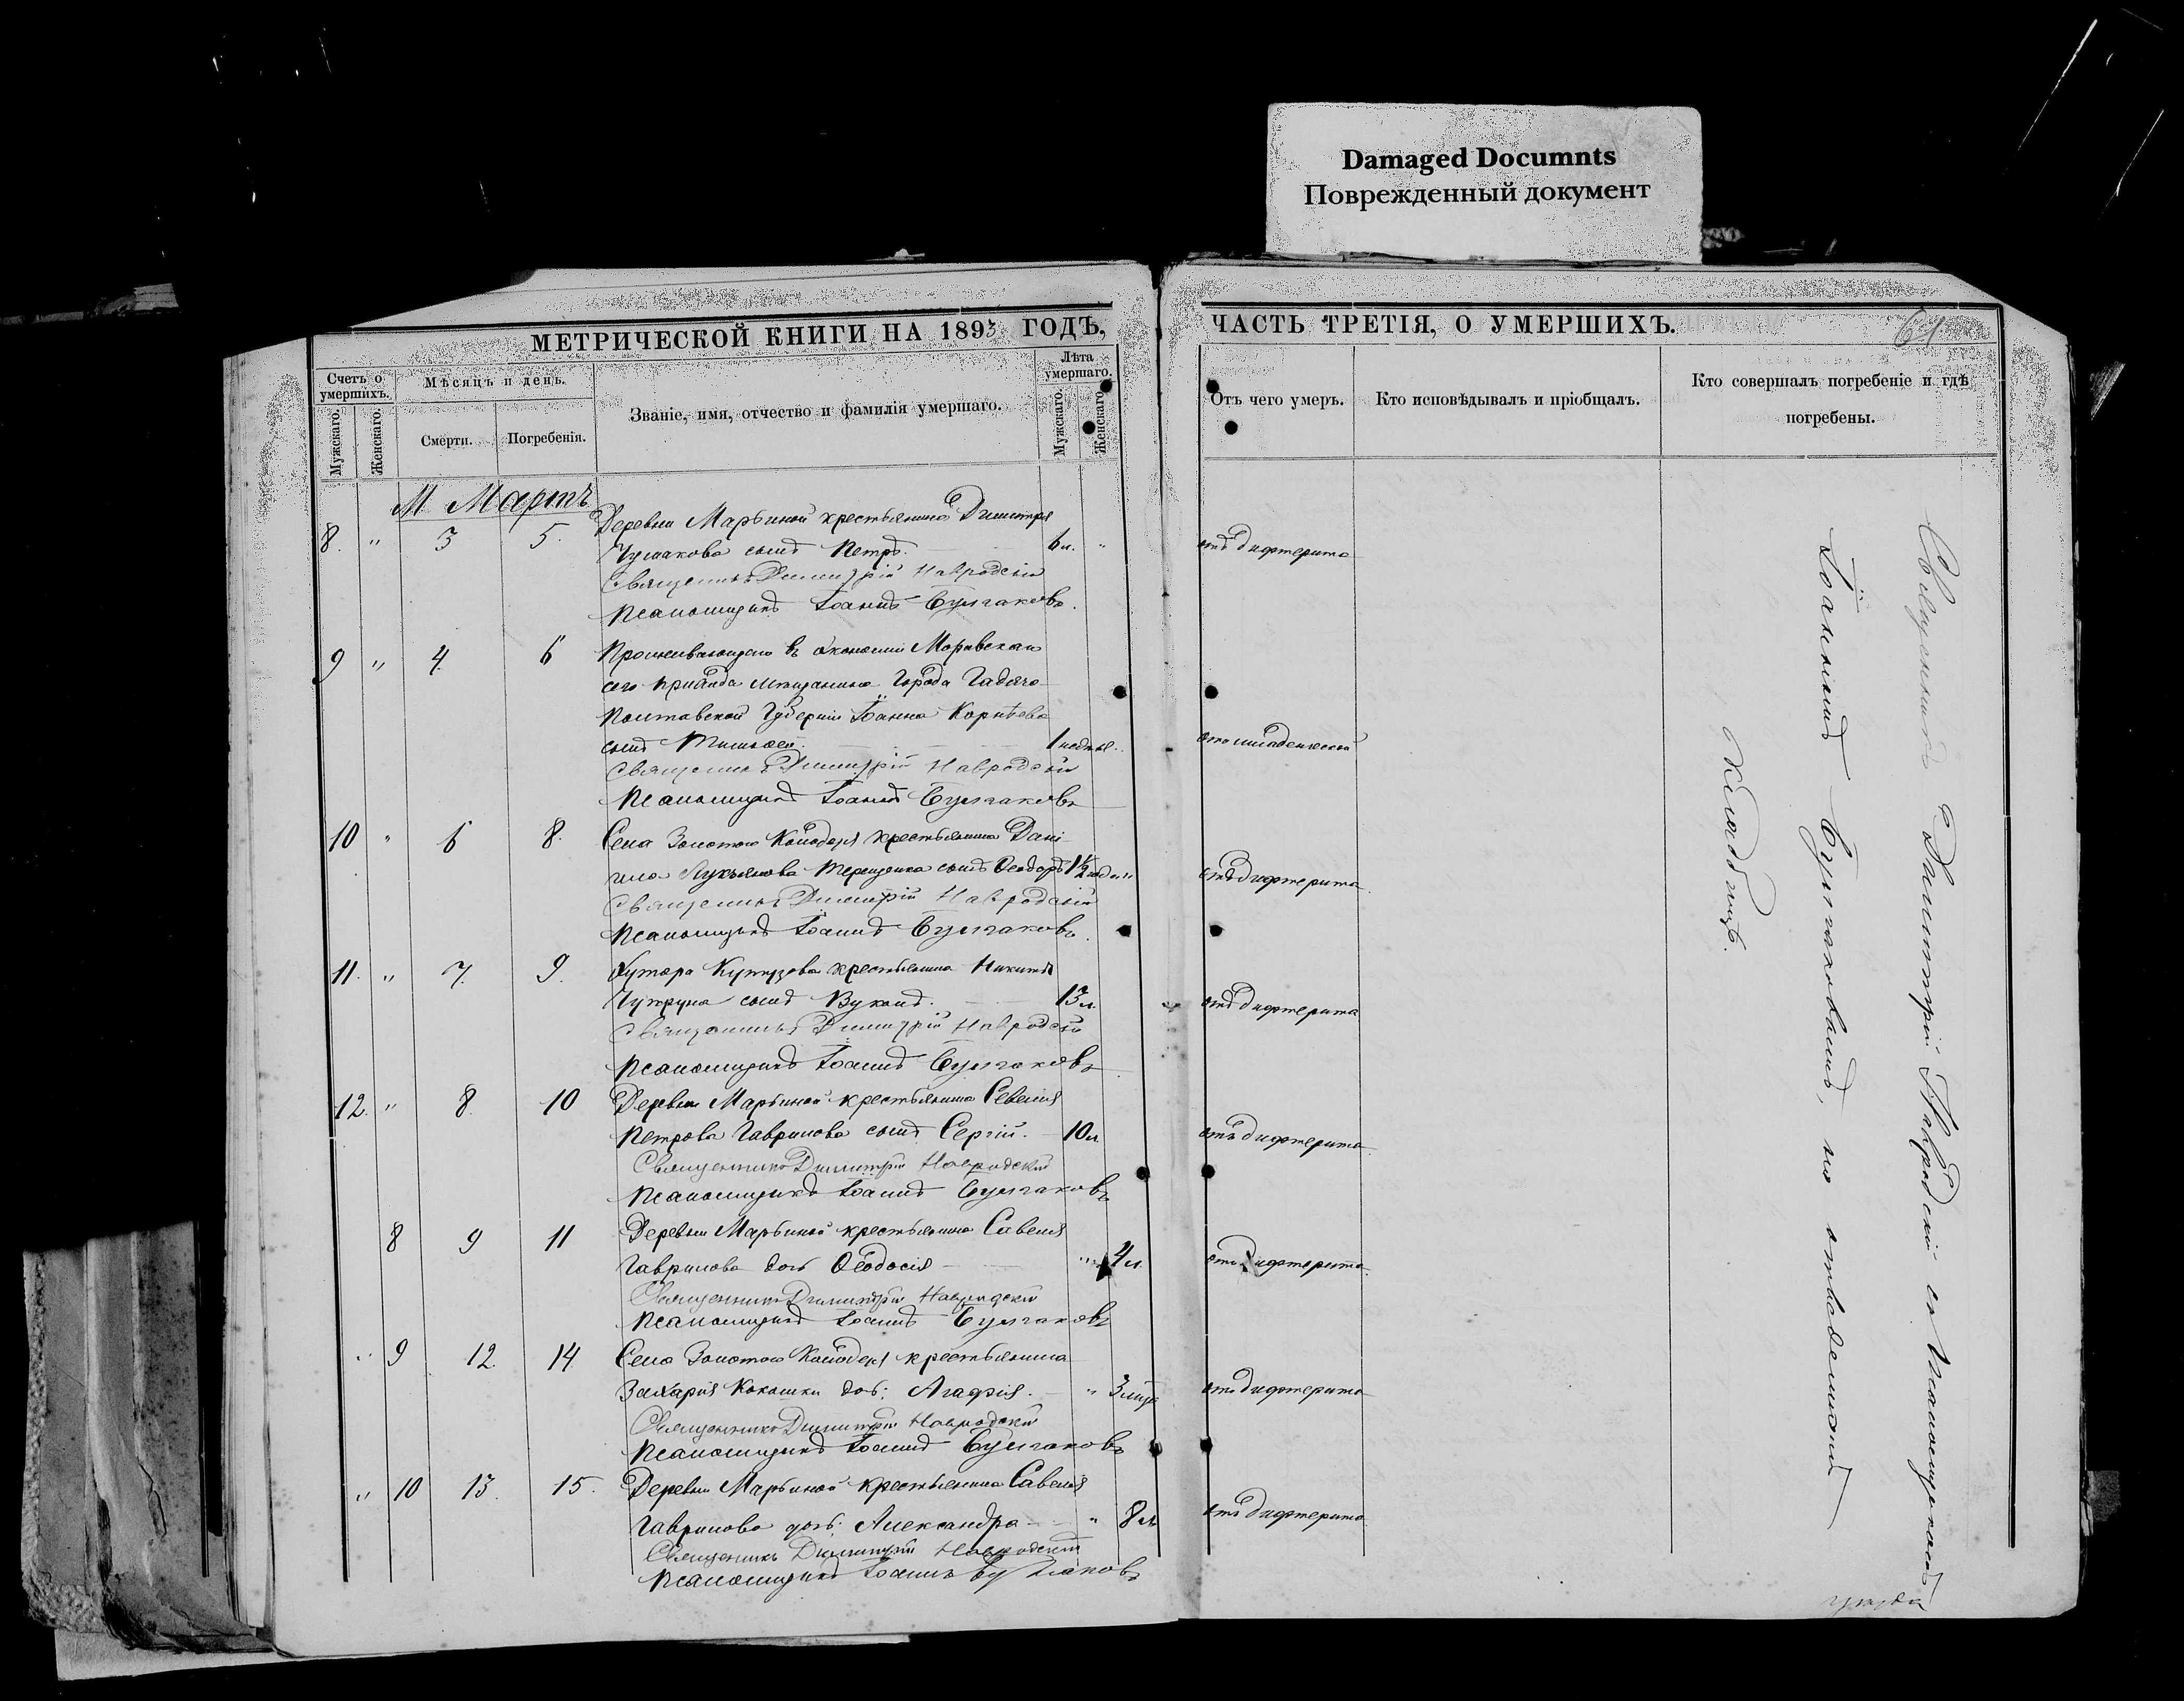 Damaged Documnts
Поврежденный документ
МЕТРИЧЕСКОЙ КНИГИ НА 1893 ГОДЪ,
ЧАСТЬ ТРЕТІЯ, О УМЕРШИХЪ.
61
Счетъ о умершихъ.
Мужскаго.
Женскаго.
Мѣсяцъ и день.
Смерти.
Погребенія.
Званіе, имя, отчество и фамилія умершаго.
Лѣта умершаго.
Мужскаго.
Женскаго.
Отъ чего умеръ.
Кто исповѣдывалъ и пріобщалъ.
Кто совершалъ погребеніе и гдѣ погребены.
М. Мартъ
8. " 3 5. Деревни Марьиной крестьянина Димитрія
Чумакова сынъ Петръ. 6 л. " отъ дифтерита
Священникъ Димитрій Навродскій
Псаломщикъ Іоаннъ Булгаковъ.
9 " 4. 6 Проживающаго въ экономіи
сего прихода мѣщанина города Гадяча
Полтавской Губерніи Іоанна Корнѣева
сынъ 1 недѣля. отъ младенческой
Священникъ Димитрій Навродскій
Псаломщикъ Іоаннъ Булгаковъ
10 " 6 8. Села Золотого Колодезя крестьянина Дані-
ила Лукьянова Терещенка сынъ Ѳеодоръ 1½ год. " отъ дифтерита
Священникъ Димитрій Навродскій
Псаломщикъ Іоаннъ Булгаковъ.
11. " 7. 9. Хутора Кутузова крестьянина Никиты
сынъ 13 л. отъ дифтерита
Священникъ Димитрій Навродскій
Псаломщикъ Іоаннъ Булгаковъ
12. " 8. 10 Деревни Марьиной крестьянина Севелія
Петрова Гаврилова сынъ Сергій. 10 л. отъ дифтерита
Священникъ Димитрій Навродскій
Псаломщикъ Іоаннъ Булгаковъ
8 9 11 Деревни Марьиной крестьянина Савелія
Гаврилова дочь Ѳеодосія " 4 л. отъ дифтерита.
Священникъ Димитрій Навродскій
Псаломщикъ Іоаннъ Булгаковъ
" 9 12. 14 Села Золотого Колодезя крестьянина
Захарія Кокошки доч: Агафія. " 3 отъ дифтерита
Священникъ Димитрій Навродскій
Псаломщикъ Іоаннъ Булгаковъ
" 10 13. 15. Деревни Марьиной крестьянина Савелія
Гаврилова доч: Александра " 8 л. отъ дифтерита.
Священникъ Димитрій Навродскій
Псаломщикъ Іоаннъ Булгаковъ
Священникъ Димитрій Навродскій съ Псаломщикомъ
Іоанномъ Булгаковымъ, на отведенномъ
кладбищѣ.